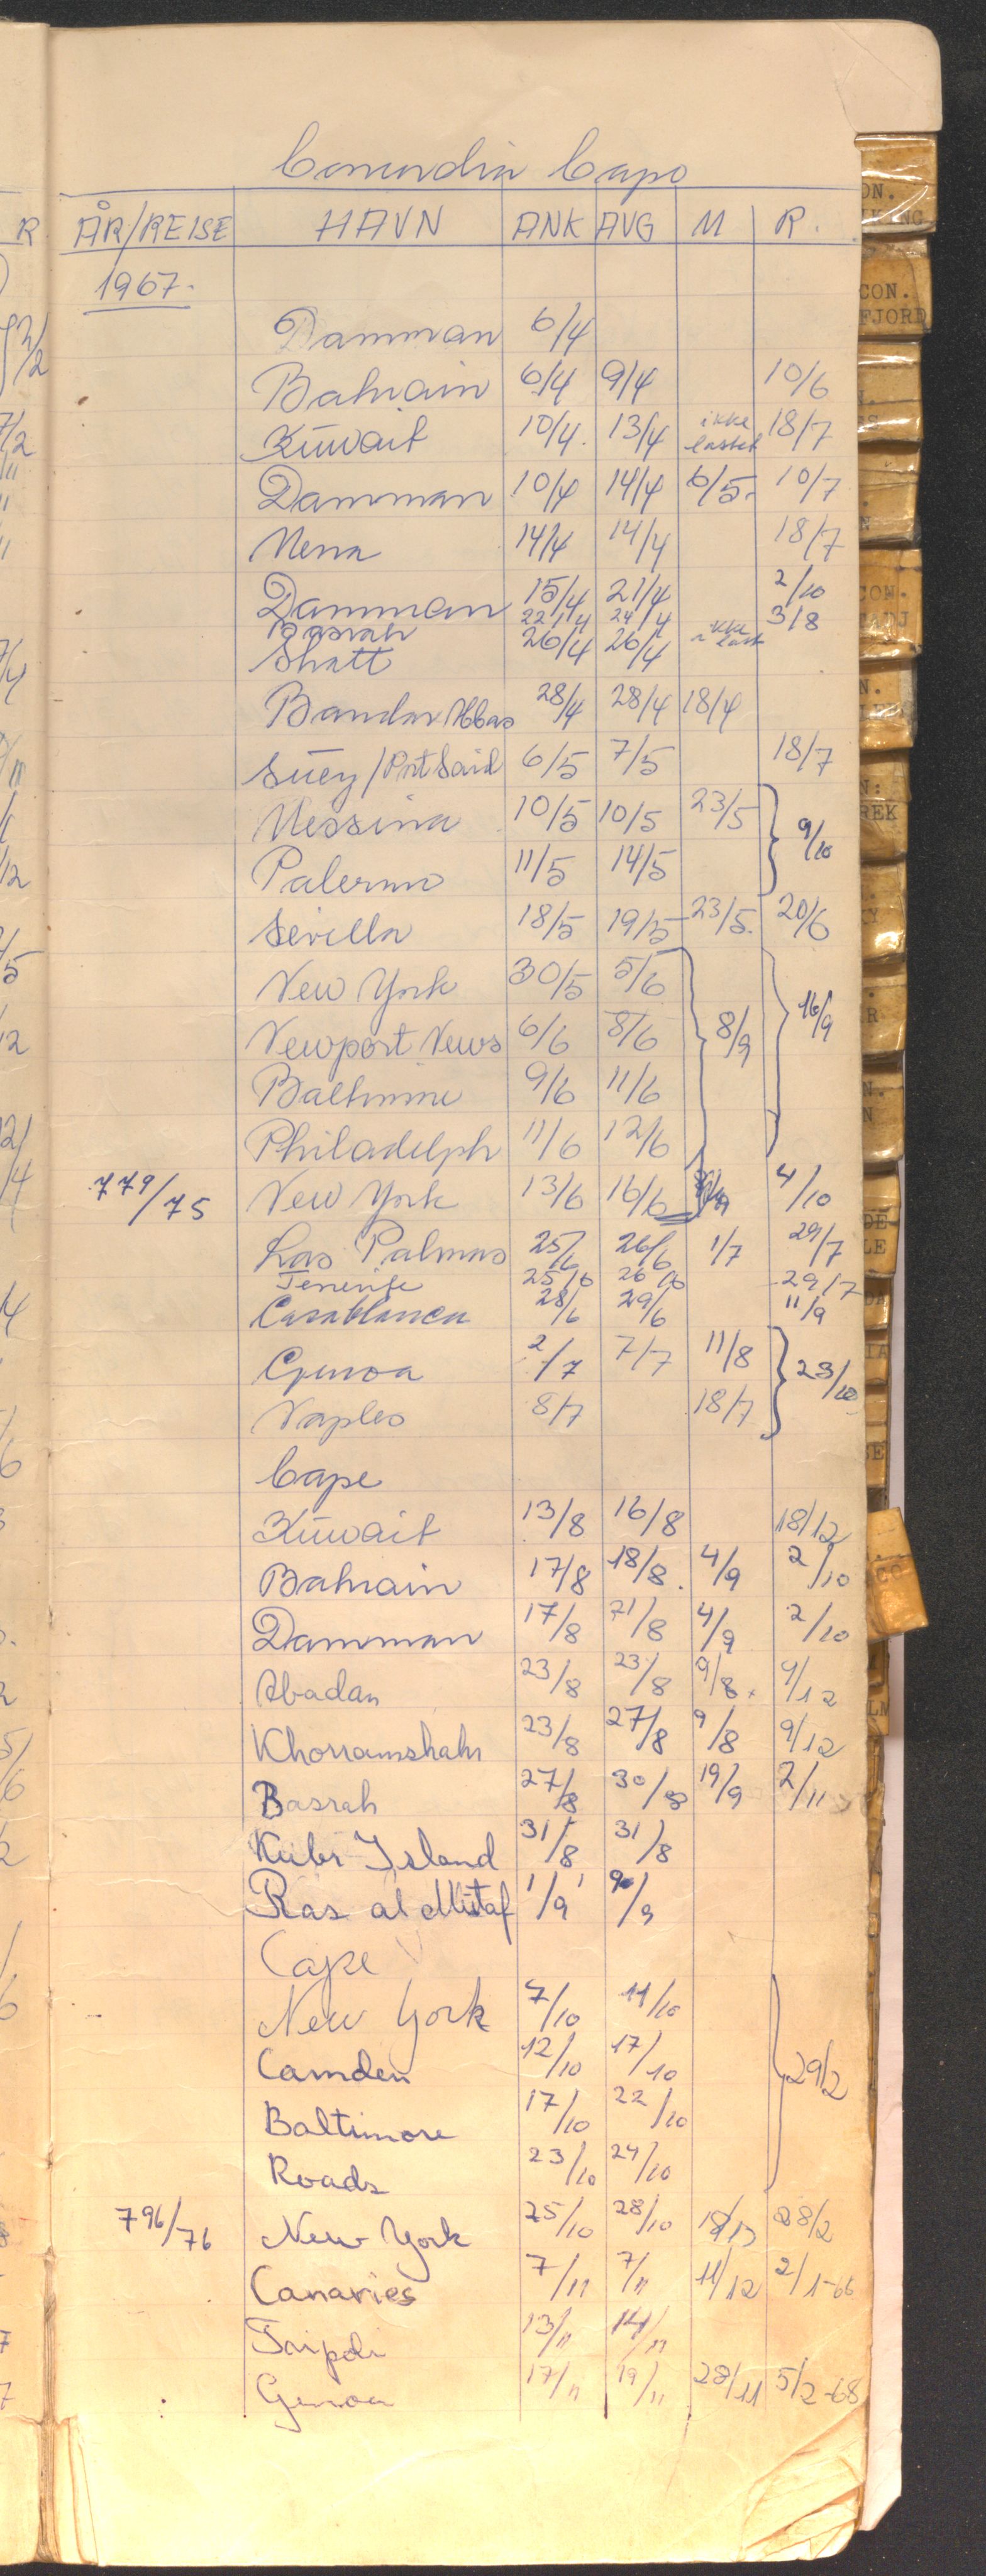 Concordia Capo
ÅR/REISE HAVN ANK AVG M R.
1967.
Damman 6/4
Bahrain 6/4 9/4 10/6
Kuwait 10/4. 13/4 ikke lastet 18/7
Damman 10/4 14/4 6/5. 10/7
Mena 14/4 14/4 18/7
Damman 15/4 21/4 2/10
Basrah 22/4 24/4 3/8
Shatt 26/4 26/4 ikke last
Bandar Abbas 28/4 28/4 18/4
Suez/Port Said 6/5 7/5 18/7
Messina 10/5 10/5 23/5
9/10
Palermo 11/5 14/5
Sevilla 18/5 19/5 23/5. 20/6
New York 30/5 5/6
Newport News 6/6 8/6 8/9 16/9
Baltimore 9/6 11/6
Philadelph 11/6 12/6
779/75 New York 13/6 16/6 4/10
Las Palmas 25/6 26/6 1/7 29/7
Tenerife 25/6 26/6 29/7
Casablanca 28/6 29/6 11/9
Genoa 2/7 7/7 11/8 23/10
Naples 8/7 18/7
Cape
Kuwait 13/8 16/8 18/12
Bahrain 17/8 18/8. 4/9 2/10
Damman 17/8 21/8 4/9 2/10
Abadan 23/8 23/8 9/8. 9/12
Khorramshahr 23/8 27/8 9/8 9/12
Basrah 27/8 30/8 19/9 2/11
Kubr Island 31/8 31/8
Ras al Mutaf 1/9 /9
Cape
New York 7/10 11/10
Camden 12/10 17/10 29/2
Baltimore 17/10 22/10
Roads 23/10 24/10
796/76 New York 25/10 28/10 28/2
Canaries 7/11 7/11 11/12 2/1-66
13/11 14/11
Genoa 17/11 19/11 28/11 5/2-68